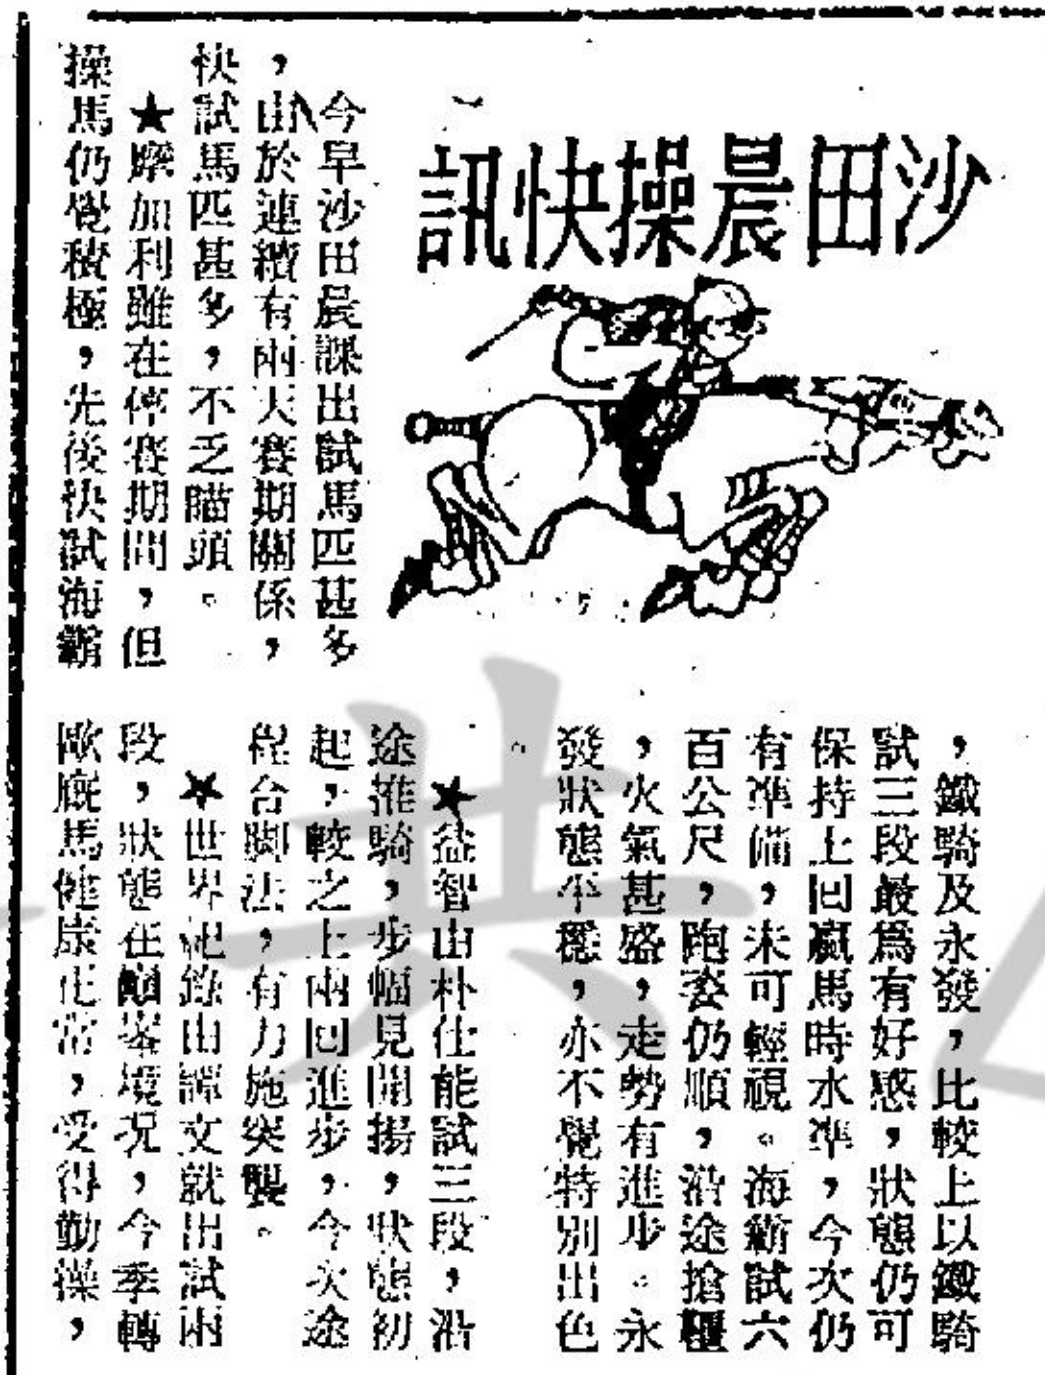 沙田晨操快訊
今早沙田晨課出試馬匹甚多
，由於連續有兩天賽期關係，
快試馬匹甚多，不乏瞄頭。
★摩加利雖在停賽期間，但
操馬仍覺積極，先後快試海霸
，鐵騎及永發，比較上以鐵騎
試三段最為有好感，狀態仍可
保持上回贏馬時水準，今次仍
有準備，未可輕視。海霸試六
百公尺，跑姿仍順，沿途搶韁
，火氣甚盛，走勢有進步。永
發狀態平穩，亦不覺特別出色
。
★益智由朴仕能試三段，沿
途推騎，步幅見開揚，狀態初
起，較之上兩回進步，今次途
程合脚法，有力施突襲。
★世界紀錄由譚文就出試兩
段，狀態在巔峯境況，今季轉
歐廐馬健康正常，受得勤操，
共